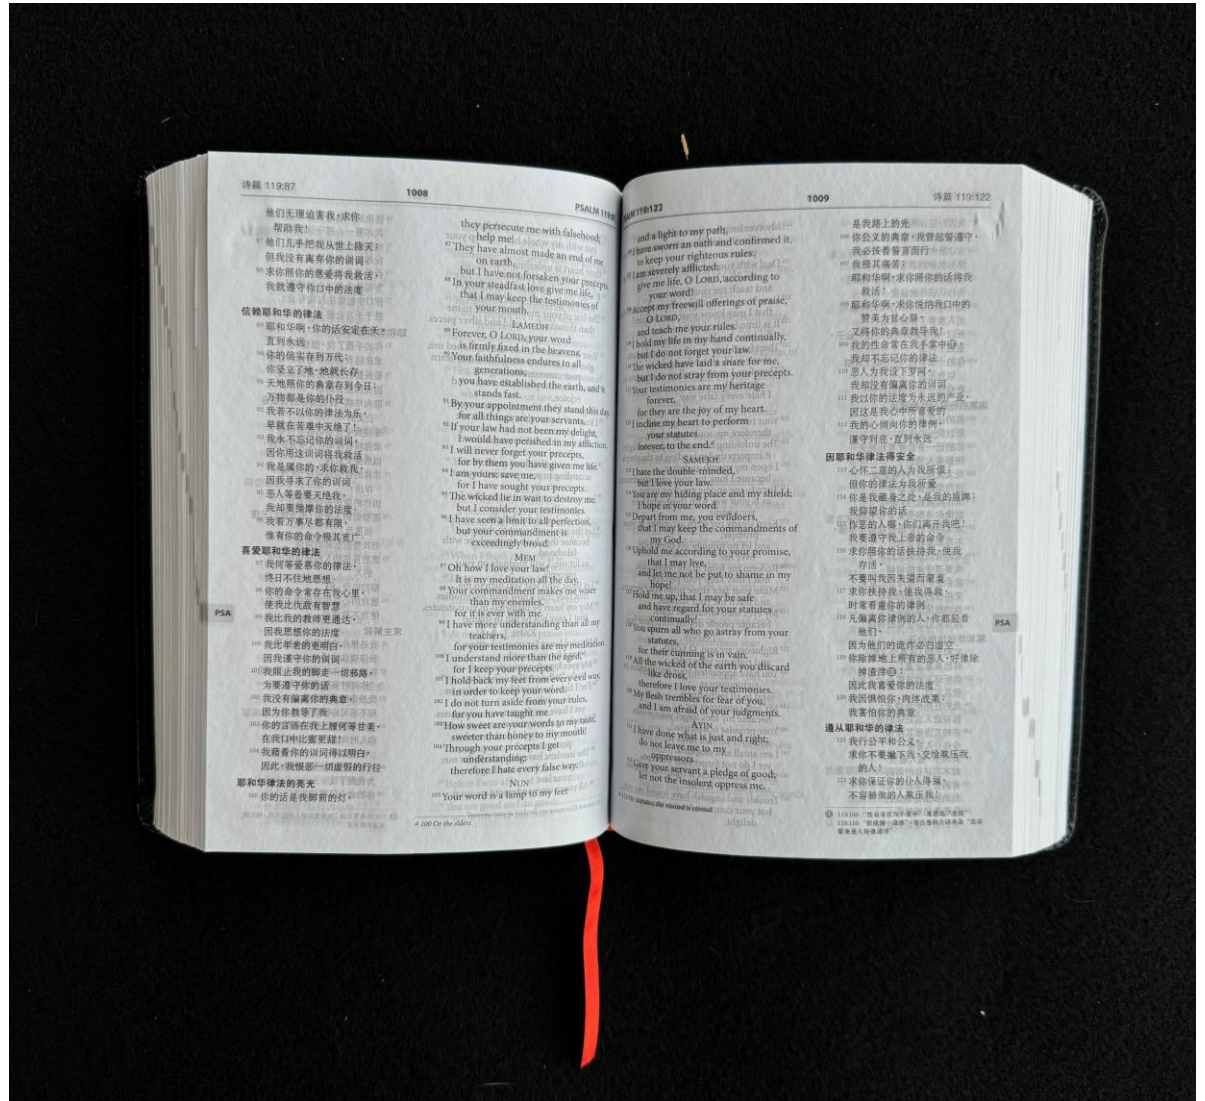 诗篇 119:87
1008
PSALM 119:87
他们无理迫害我，求你
帮助我！
87 他们几乎把我从世上除灭；
但我没有离弃你的训词
88 求你照你的慈爱将我救活，
我就遵守你口中的法度
信赖耶和华的律法
89 耶和华啊，你的话安定在天，
直到永远
90 你的信实存到万代；
你坚立了地，地就长存
91 天地照你的典章存到今日；
万物都是你的仆役
92 我若不以你的律法为乐，
早就在苦难中灭绝了！
93 我永不忘记你的训词，
因你用这训词将我救活
94 我是属你的，求你救我，
因我寻求了你的训词
95 恶人等着要灭绝我，
我却要揣摩你的法度
96 我看万事尽都有限，
惟有你的命令极其宽广
喜爱耶和华的律法
97 我何等爱慕你的律法，
终日不住地思想
98 你的命令常存在我心里，
使我比仇敌有智慧
99 我比我的教师更通达，
因我思想你的法度
100 我比年老的更明白，
因我谨守你的训词
101 我阻止我的脚走一切邪路，
为要遵守你的话
102 我没有偏离你的典章，
因为你教导了我
103 你的言语在我上膛何等甘美，
在我口中比蜜更甜！
104 我藉着你的训词得以明白，
因此，我恨恶一切虚假的行径
耶和华律法的亮光
105 你的话是我脚前的灯，
PSA
they persecute me with falsehood;
help me!
87 They have almost made an end of me
on earth,
but I have not forsaken your precepts.
88 In your steadfast love give me life,
that I may keep the testimonies of
your mouth.
LAMEDH
89 Forever, O LORD, your word
is firmly fixed in the heavens.
90 Your faithfulness endures to all
generations;
you have established the earth, and it
stands fast.
91 By your appointment they stand this day,
for all things are your servants.
92 If your law had not been my delight,
I would have perished in my affliction.
93 I will never forget your precepts,
for by them you have given me life.
94 I am yours; save me,
for I have sought your precepts.
95 The wicked lie in wait to destroy me,
but I consider your testimonies.
96 I have seen a limit to all perfection,
but your commandment is
exceedingly broad.
MEM
97 Oh how I love your law!
It is my meditation all the day.
98 Your commandment makes me wiser
than my enemies,
for it is ever with me.
99 I have more understanding than all my
teachers,
for your testimonies are my meditation.
100 I understand more than the aged,a
for I keep your precepts.
101 I hold back my feet from every evil way,
in order to keep your word.
102 I do not turn aside from your rules,
for you have taught me.
103 How sweet are your words to my taste,
sweeter than honey to my mouth!
104 Through your precepts I get
understanding;
therefore I hate every false way.
NUN
105 Your word is a lamp to my feet
a 100 Or the elders
PSALM 119:122
1009
诗篇 119:122
and a light to my path.
I have sworn an oath and confirmed it,
to keep your righteous rules.
I am severely afflicted;
give me life, O LORD, according to
your word!
Accept my freewill offerings of praise,
O LORD,
and teach me your rules.
I hold my life in my hand continually,
but I do not forget your law.
The wicked have laid a snare for me,
but I do not stray from your precepts.
Your testimonies are my heritage
forever,
for they are the joy of my heart.
I incline my heart to perform
your statutes
forever, to the end.a
SAMEKH
I hate the double-minded,
but I love your law.
You are my hiding place and my shield;
I hope in your word.
Depart from me, you evildoers,
that I may keep the commandments of
my God.
Uphold me according to your promise,
that I may live,
and let me not be put to shame in my
hope!
Hold me up, that I may be safe
and have regard for your statutes
continually!
You spurn all who go astray from your
statutes,
for their cunning is in vain.
All the wicked of the earth you discard
like dross,
therefore I love your testimonies.
My flesh trembles for fear of you,
and I am afraid of your judgments.
AYIN
I have done what is just and right;
do not leave me to my
oppressors.
Give your servant a pledge of good;
let not the insolent oppress me.
the reward is eternal
是我路上的光
106 你公义的典章，我曾起誓遵守，
我必按着誓言而行
107 我极其痛苦；
耶和华啊，求你照你的话将我
救活！
108 耶和华啊，求你悦纳我口中的
赞美为甘心祭，
又将你的典章教导我！
109 我的性命常在我手掌中，
我却不忘记你的律法
110 恶人为我设下罗网，
我却没有偏离你的训词
111 我以你的法度为永远的产业，
因这是我心中所喜爱的
112 我的心倾向你的律例，
谨守到底，直到永远
因耶和华律法得安全
113 心怀二意的人为我所恨；
但你的律法为我所爱
114 你是我藏身之处，是我的盾牌；
我仰望你的话
115 作恶的人哪，你们离开我吧！
我要遵守我上帝的命令
116 求你照你的话扶持我，使我
存活，
不要叫我因失望而蒙羞
117 求你扶持我，使我得救，
时常看重你的律例
118 凡偏离你律例的人，你都轻看
他们，
因为他们的诡诈必归虚空
119 你除掉地上所有的恶人，好像除
掉渣滓；
因此我喜爱你的法度
120 我因惧怕你，肉体战栗；
我害怕你的典章
遵从耶和华的律法
121 我行公平和公义，
求你不要撇下我，交给欺压我
的人！
122 求你保证你的仆人得福，
不容骄傲的人欺压我！
PSA